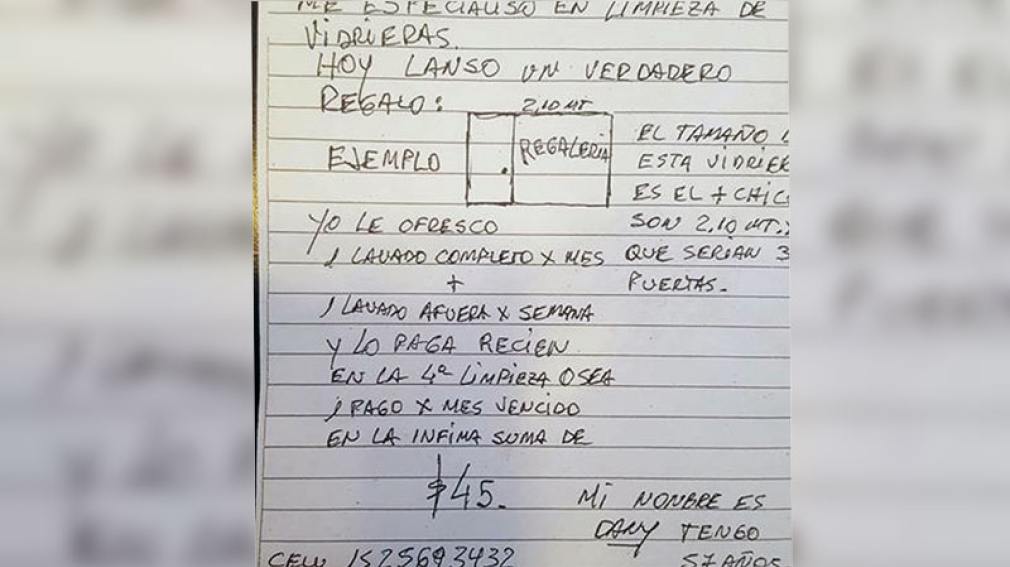 ME ESPECIALISO EN LIMPIEZA DE
VIDRIERAS.
HOY LANSO UN VERDADERO
REGALO:
2,10 MT
EJEMPLO
REGALERIA
EL TAMAÑO
ESTA VIDRIER
ES EL + CHIC
SON 2,10 MT.
QUE SERIAN 3
PUERTAS.
YO LE OFRESCO
1 LAVADO COMPLETO X MES
+
1 LAVADO AFUERA X SEMANA
Y LO PAGA RECIEN
EN LA 4ª LIMPIEZA OSEA
1 PAGO X MES VENCIDO
EN LA INFIMA SUMA DE
$45.
MI NOMBRE ES
DANY TENGO
57 AÑOS.
CELU 1525693432